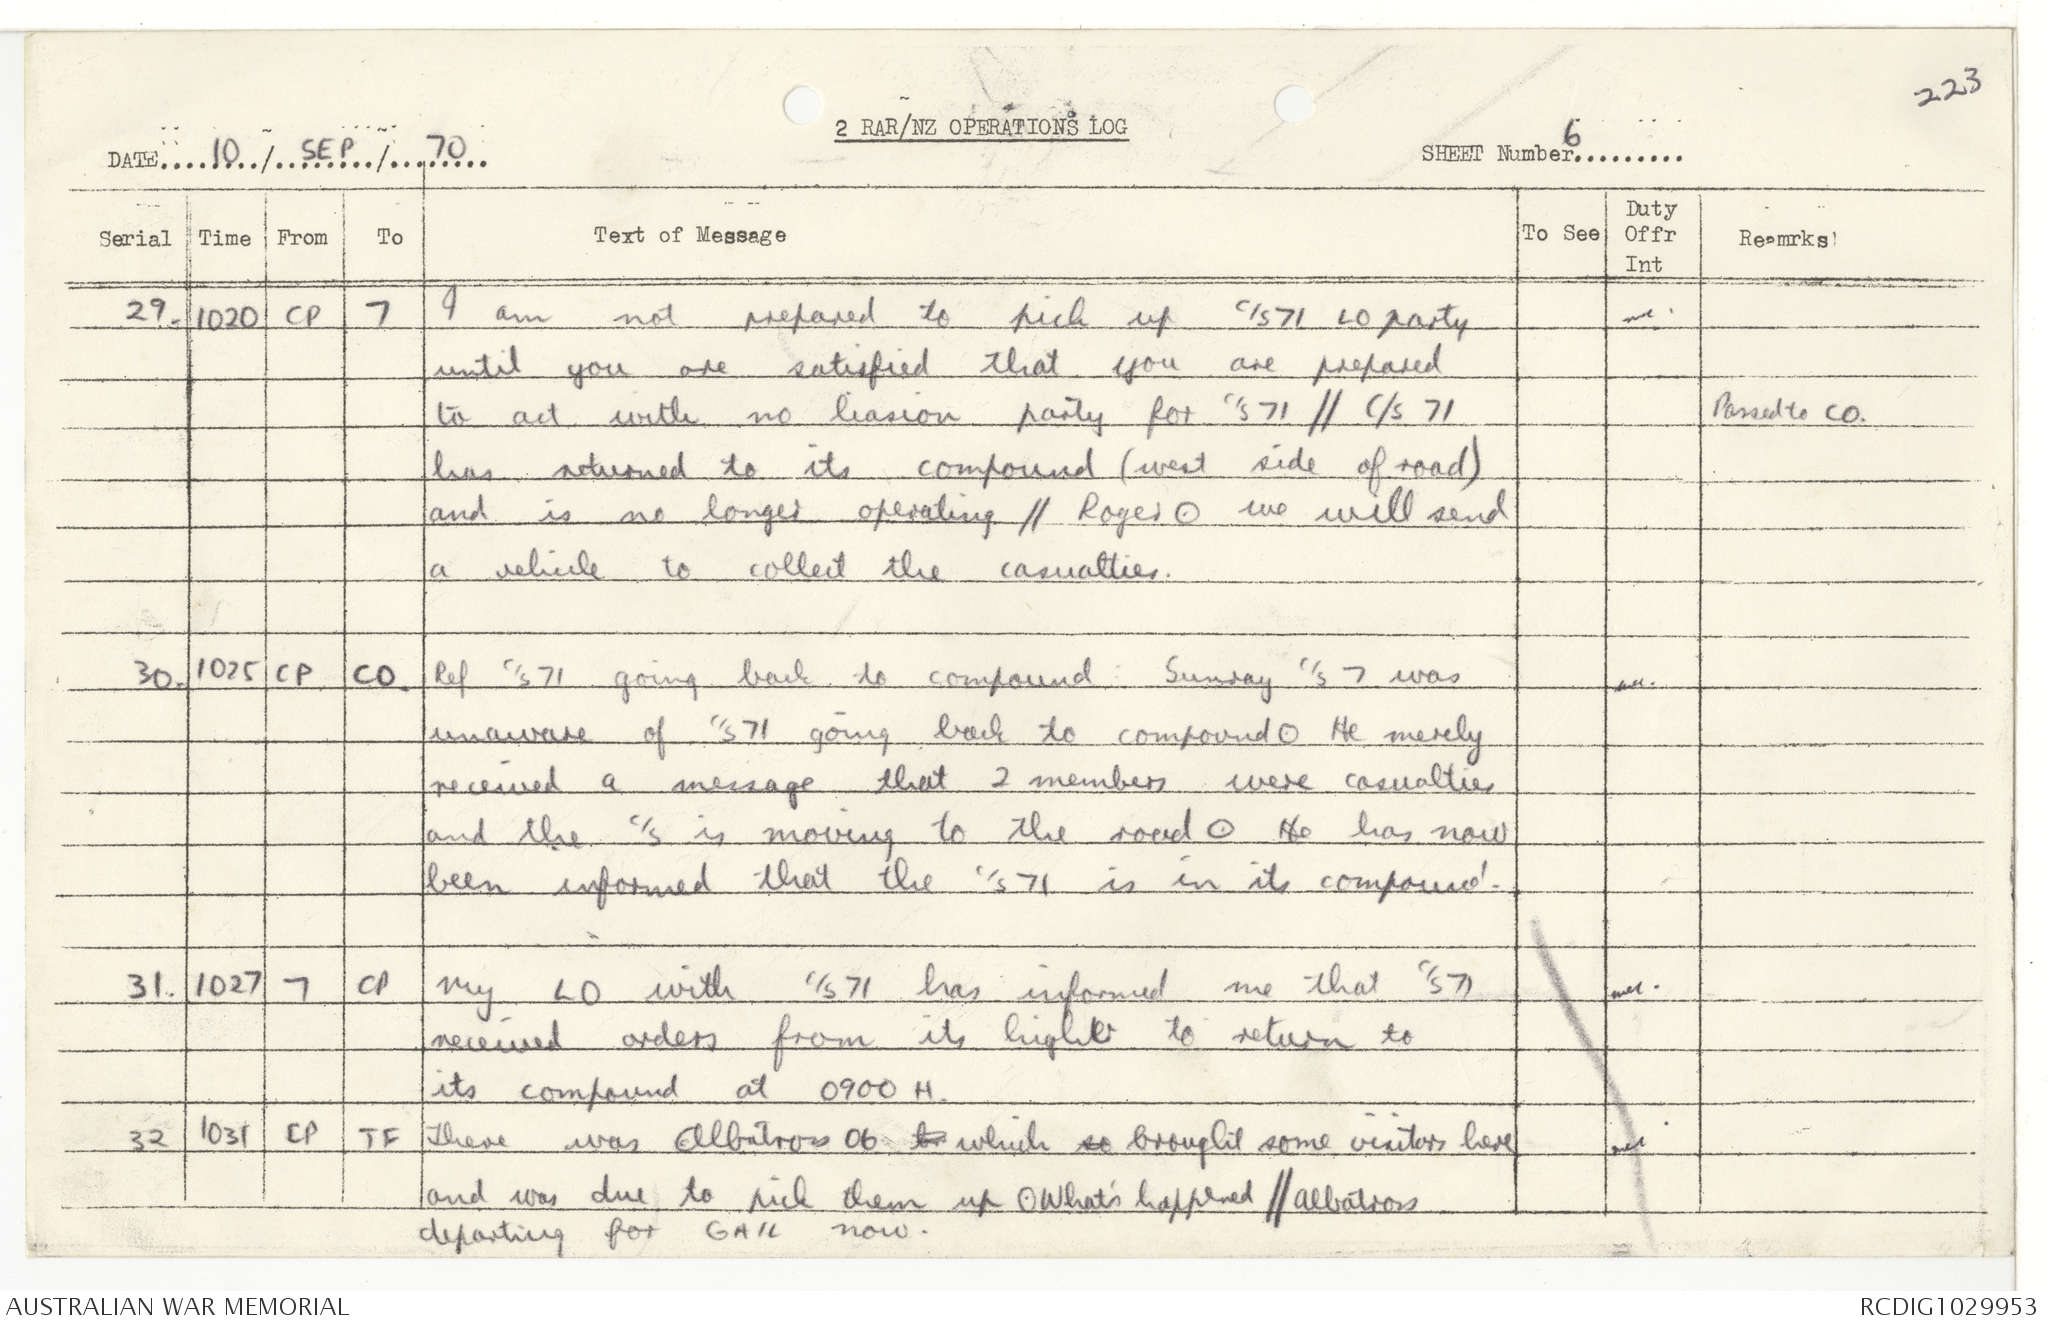 223
2 RAR/NZ OPERATIONS LOG
DATE....10../..SEP../...70...
SHEET Number 6.........
Serial Time From To Text of Message To See Duty Offr Int Remrks
29. 1020 CP 7 I am not prepared to pick up C/S 71 LO party
until you are satisfied that you are prepared
to act with no liasion party for C/S 71 // C/S 71 Passed to CO.
has returned to its compound (west side of road)
and is no longer operating // Roger ⊙ we will send
a vehicle to collect the casualties.
30. 1025 CP CO. Ref C/S 71 going back to compound. Sunray C/S 7 was
unaware of C/S 71 going back to compound ⊙ He merely
received a message that 2 members were casualties
and the C/S is moving to the road ⊙ He has now
been informed that the C/S 71 is in its compound.
31. 1027 7 CP My LO with C/S 71 has informed me that C/S 71
received orders from its higher to return to
its compound at 0900 H.
32 1031 CP TF There was Albatross 06 which brought some visitors here
and was due to pick them up ⊙ What's happened // Albatross
departing for GAIL now.
AUSTRALIAN WAR MEMORIAL
RCDIG1029953